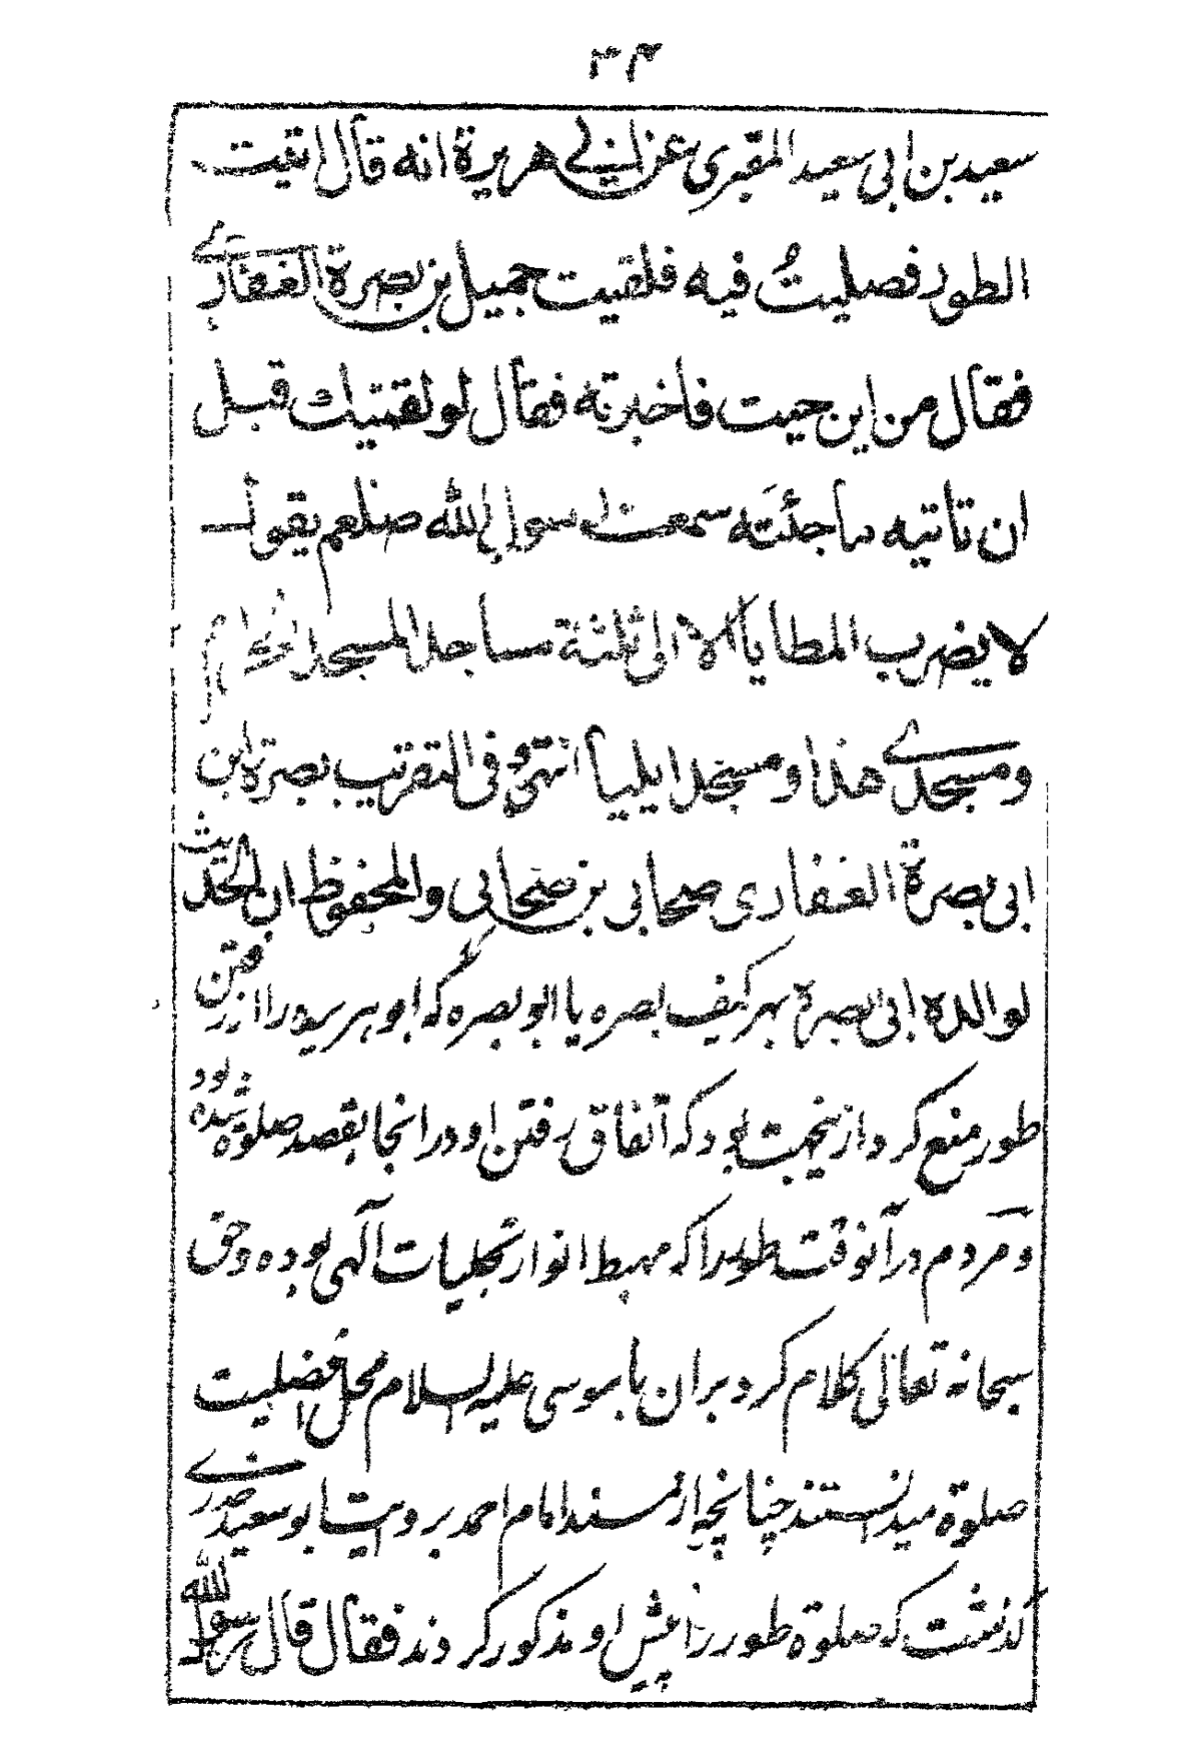 ۳۴
سعید بن ابی سعید المقبری عن ابی هریرة انه قال اتیت
الطور فصلیتُ فیه فلقیت جمیل بن بصرة الغفاری
فقال من این جیت فاخبرته فقال لو لقیتك قبل
ان تاتیه ما جئتَه سمعت رسول الله صلعم یقول
لا یضرب المطایا الا الی ثلثة مساجد المسجد الحرام
و مسجدی هذا و مسجد ایلیا انتهی و فی التقریب بصرة ابن
ابی بصرة الغفاری صحابی بن صحابی والمحفوظ ان الحدیث
لوالده ابی بصرة بهر کیف بصره یا ابو بصره که ابو هریره را از رفتن
طور منع کرد ازینجهت بود که اتفاق رفتن او در انجا بقصد صلوة شده بود
و مردم در آنوقت طور را که مهبط انوار تجلیات آلهی بوده و حق
سبحانه تعالی کلام کرد بران با موسی علیه السلام محل افضلیت
صلوة میدانستند چنانچه از مسند امام احمد بروایت ابو سعید خدری
گذشت که صلوة طور را پیش او مذکور کردند فقال قال رسول الله